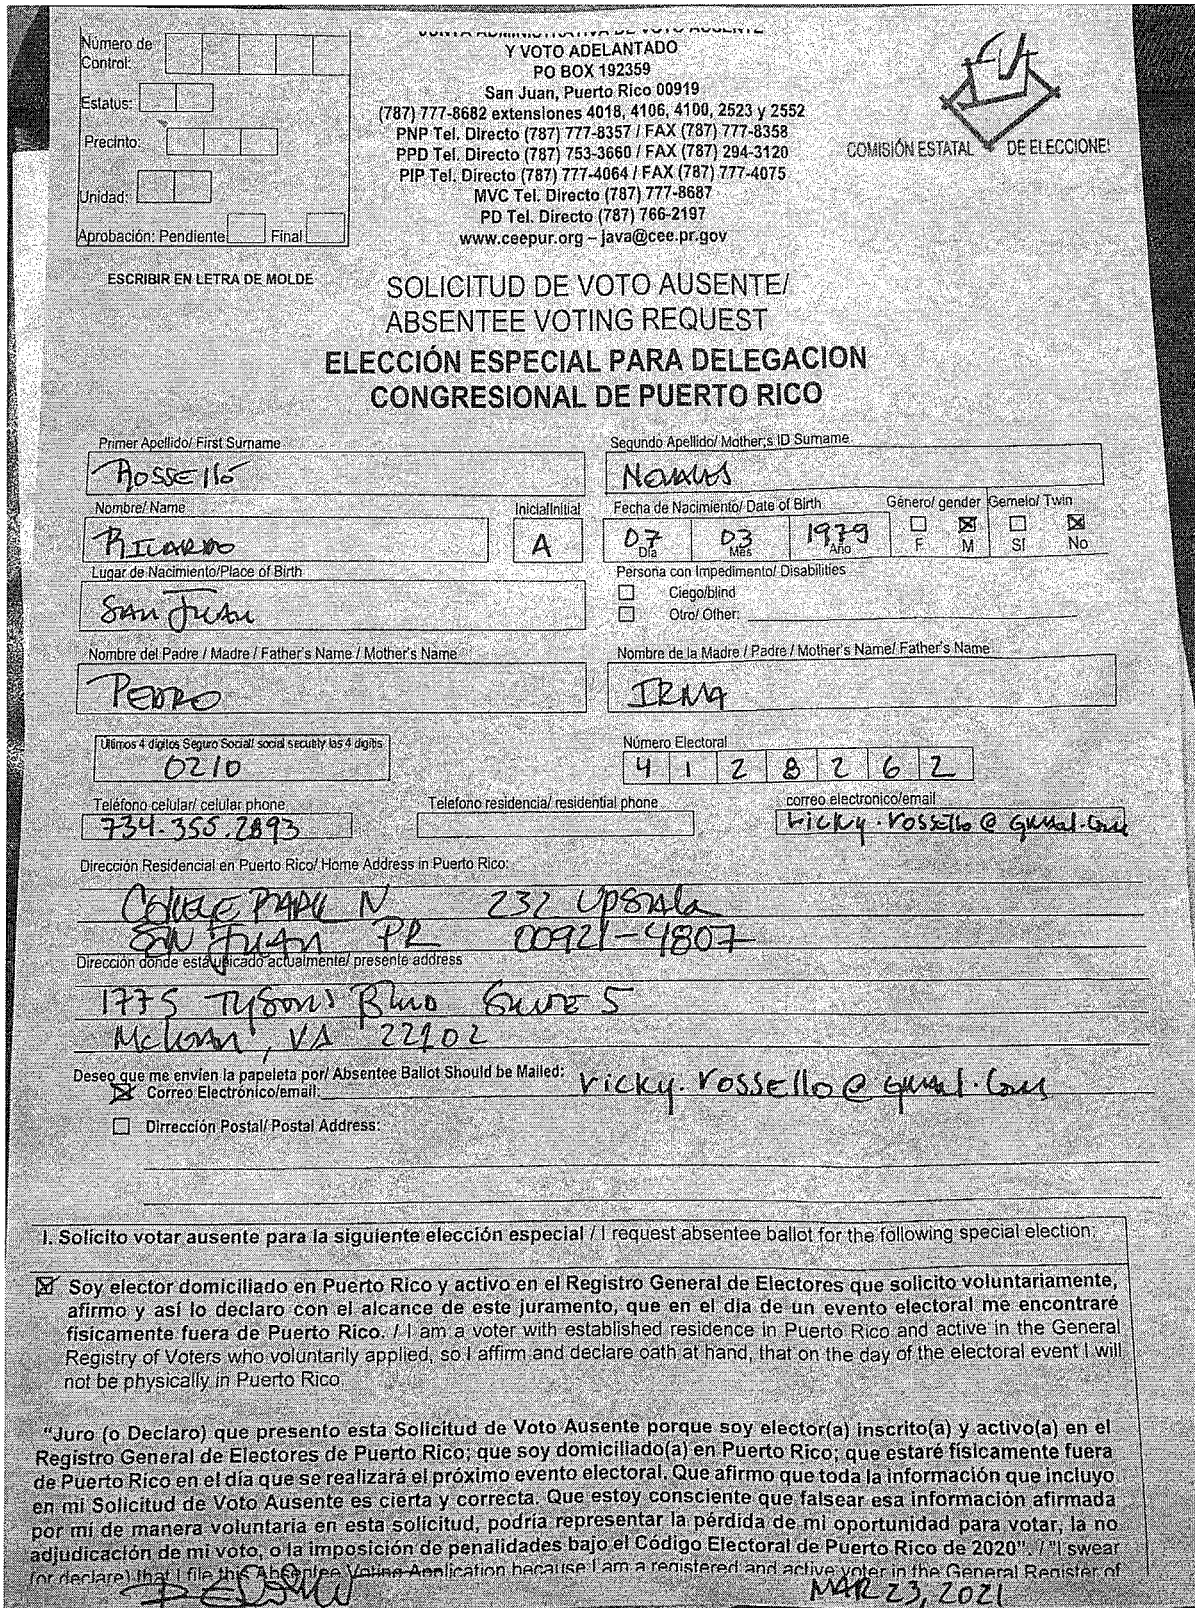 Número de Control:
Estatus:
Precinto:
Unidad:
Aprobación: Pendiente Final
JUNTA ADMINISTRATIVA DE VOTO AUSENTE
Y VOTO ADELANTADO
PO BOX 192359
San Juan, Puerto Rico 00919
(787) 777-8682 extensiones 4018, 4106, 4100, 2523 y 2552
PNP Tel. Directo (787) 777-8357 / FAX (787) 777-8358
PPD Tel. Directo (787) 753-3660 / FAX (787) 294-3120
PIP Tel. Directo (787) 777-4064 / FAX (787) 777-4075
MVC Tel. Directo (787) 777-8687
PD Tel. Directo (787) 766-2197
www.ceepur.org – java@cee.pr.gov
COMISIÓN ESTATAL DE ELECCIONES
ESCRIBIR EN LETRA DE MOLDE
SOLICITUD DE VOTO AUSENTE/
ABSENTEE VOTING REQUEST
ELECCIÓN ESPECIAL PARA DELEGACION
CONGRESIONAL DE PUERTO RICO
Primer Apellido/ First Surname Segundo Apellido/ Mother;s ID Surname
Rosselló Nevares
Nombre/ Name Inicial/Initial Fecha de Nacimiento/ Date of Birth Género/ gender Gemelo/ Twin
Ricardo A 07 03 1979
Día Mes Año F M SI No
Lugar de Nacimiento/Place of Birth Persona con Impedimento/ Disabilities
San Juan Ciego/blind
Otro/ Other:
Nombre del Padre / Madre / Father's Name / Mother's Name Nombre de la Madre / Padre / Mother's Name/ Father's Name
Pedro Irma
Ultimos 4 digitos Seguro Social/ social security las 4 digitis Número Electoral
0210 4 1 2 8 2 6 2
Teléfono celular/ celular phone Telefono residencia/ residential phone correo electronico/email
734.355.2893 ricky.rossello@gmail.com
Dirección Residencial en Puerto Rico/ Home Address in Puerto Rico:
College Park N 232 Upsala
San Juan PR 00921-4807
Dirección donde esta ubicado actualmente/ presente address
1775 Tysons Blvd Suite 5
McLean, VA 22102
Deseo que me envíen la papeleta por/ Absentee Ballot Should be Mailed:
Correo Electrónico/email: ricky.rossello@gmail.com
Dirrección Postal/ Postal Address:
I. Solicito votar ausente para la siguiente elección especial / I request absentee ballot for the following special election:
Soy elector domiciliado en Puerto Rico y activo en el Registro General de Electores que solicito voluntariamente,
afirmo y así lo declaro con el alcance de este juramento, que en el día de un evento electoral me encontraré
físicamente fuera de Puerto Rico. / I am a voter with established residence in Puerto Rico and active in the General
Registry of Voters who voluntarily applied, so I affirm and declare oath at hand, that on the day of the electoral event I will
not be physically in Puerto Rico.
"Juro (o Declaro) que presento esta Solicitud de Voto Ausente porque soy elector(a) inscrito(a) y activo(a) en el
Registro General de Electores de Puerto Rico; que soy domiciliado(a) en Puerto Rico; que estaré físicamente fuera
de Puerto Rico en el día que se realizará el próximo evento electoral. Que afirmo que toda la información que incluyo
en mi Solicitud de Voto Ausente es cierta y correcta. Que estoy consciente que falsear esa información afirmada
por mí de manera voluntaria en esta solicitud, podría representar la pérdida de mi oportunidad para votar, la no
adjudicación de mi voto, o la imposición de penalidades bajo el Código Electoral de Puerto Rico de 2020". / "I swear
(or declare) that I file this Absentee Voting Application because I am a registered and active voter in the General Register of
MAR 23, 2021